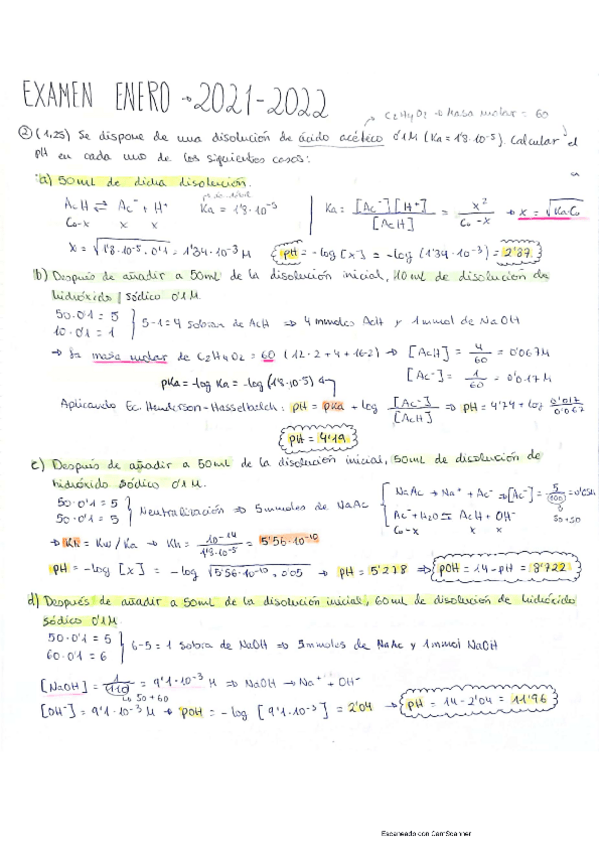 EXAMEN ENERO → 2021-2022
C2H4O2 → Masa molar = 60
② (1,25) Se dispone de una disolución de ácido acético 0'1M (Ka = 1'8·10⁻⁵). Calcular el
pH en cada uno de los siguientes casos:
a) 50ml de dicha disolución.
AcH ⇌ Ac⁻ + H⁺ Ka = 1'8·10⁻⁵ Ka = [Ac⁻][H⁺]/[AcH] = x²/(C₀-x) → x = √Ka·C₀
C₀-x x x
x = √1'8·10⁻⁵·0'1 = 1'34·10⁻³ M pH = -log [x] = -log (1'34·10⁻³) = 2'87
b) Después de añadir a 50ml de la disolución inicial, 10 ml de disolución de
hidróxido sódico 0'1M.
50·0'1 = 5
10·0'1 = 1 } 5-1=4 sobran de AcH ⇒ 4 mmoles AcH y 1 mmol de NaOH
→ La masa molar de C2H4O2 = 60 (12·2+4+16·2) → [AcH] = 4/60 = 0'067M
[Ac⁻] = 1/60 = 0'017M
pKa = -log Ka = -log (1'8·10⁻⁵)
Aplicando Ec. Henderson-Hasselbalch: pH = pKa + log [Ac⁻]/[AcH] ⇒ pH = 4'74 + log 0'017/0'067
pH = 4'19
c) Después de añadir a 50ml de la disolución inicial, 50ml de disolución de
hidróxido sódico 0'1M.
50·0'1 = 5
50·0'1 = 5 } Neutralización ⇒ 5mmoles de NaAc { NaAc → Na⁺ + Ac⁻ ⇒ [Ac⁻] = 5/100 = 0'05M
50+50
Ac⁻ + H2O ⇌ AcH + OH⁻
C₀-x x x
→ Kh = Kw/Ka → Kh = 10⁻¹⁴/1'8·10⁻⁵ = 5'56·10⁻¹⁰
pH = -log [x] = -log √5'56·10⁻¹⁰·0'05 → pH = 5'278 ⇒ pOH = 14-pH = 8'722
d) Después de añadir a 50ml de la disolución inicial, 60ml de disolución de hidróxido
sódico 0'1M.
50·0'1 = 5
60·0'1 = 6 } 6-5=1 sobra de NaOH ⇒ 5mmoles de NaAc y 1 mmol NaOH
[NaOH] = 1/110 = 9'1·10⁻³ M ⇒ NaOH → Na⁺ + OH⁻
50+60
[OH⁻] = 9'1·10⁻³ M → pOH = -log [9'1·10⁻³] = 2'04 → pH = 14-2'04 = 11'96
Escaneado con CamScanner